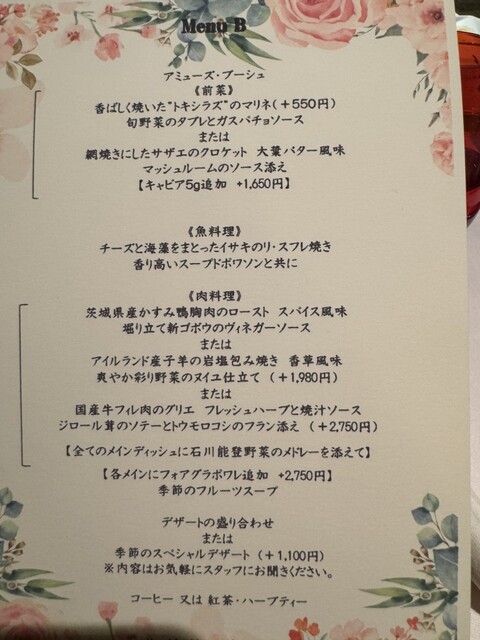 Menu B
アミューズ・ブーシュ
《前菜》
香ばしく焼いた"トキシラズ"のマリネ(+550円)
旬野菜のタブレとガスパチョソース
または
網焼きにしたサザエのクロケット 大葉バター風味
マッシュルームのソース添え
【キャビア5g追加 +1,650円】
《魚料理》
チーズと海藻をまとったイサキのリ・スフレ焼き
香り高いスープドポワソンと共に
《肉料理》
茨城県産かすみ鴨胸肉のロースト スパイス風味
堀り立て新ゴボウのヴィネガーソース
または
アイルランド産子羊の岩塩包み焼き 香草風味
爽やか彩り野菜のヌイユ仕立て (+1,980円)
または
国産牛フィレ肉のグリエ フレッシュハーブと焼汁ソース
ジロール茸のソテーとトウモロコシのフラン添え (+2,750円)
【全てのメインディッシュに石川能登野菜のメドレーを添えて】
【各メインにフォアグラポワレ追加 +2,750円】
季節のフルーツスープ
デザートの盛り合わせ
または
季節のスペシャルデザート (+1,100円)
※内容はお気軽にスタッフにお聞きください。
コーヒー 又は 紅茶・ハーブティー